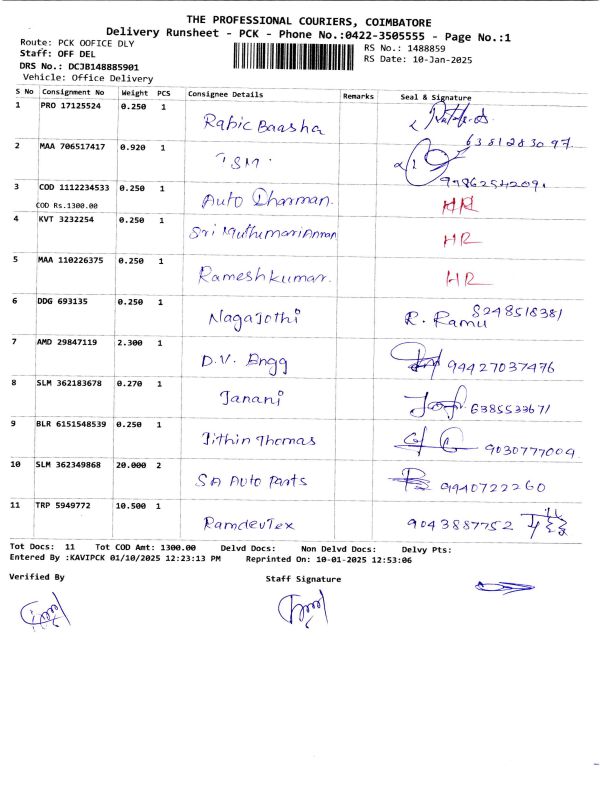 THE PROFESSIONAL COURIERS, COIMBATORE
Delivery Runsheet - PCK - Phone No.:0422-3505555 - Page No.:1
Route: PCK OOFICE DLY
RS No.: 1488859
Staff: OFF DEL
RS Date: 10-Jan-2025
DRS No.: DCJB148885901
Vehicle: Office Delivery
S No Consignment No Weight PCS Consignee Details Remarks Seal & Signature
1 PRO 17125524 0.250 1 Rabic Baasha
2 MAA 706517417 0.920 1 TSM. 6381283097
9986254209
3 COD 1112234533 0.250 1 Auto Dharman. HR
COD Rs.1300.00
4 KVT 3232254 0.250 1 Sri MuthumariAmman HR
5 MAA 110226375 0.250 1 Rameshkumar. HR
6 DDG 693135 0.250 1 Nagajothi R. Ramu 8248518381
7 AMD 29847119 2.300 1 D.V. Engg 94427037476
8 SLM 362183678 0.270 1 Janani 638553367/
9 BLR 6151548539 0.250 1 Jithin Thomas 9030777009
10 SLM 362349868 20.000 2 SA Auto Parts 9940722260
11 TRP 5949772 10.500 1 RamdevTex 9043887752
Tot Docs: 11 Tot COD Amt: 1300.00 Delvd Docs: Non Delvd Docs: Delvy Pts:
Entered By :KAVIPCK 01/10/2025 12:23:13 PM Reprinted On: 10-01-2025 12:53:06
Verified By Staff Signature